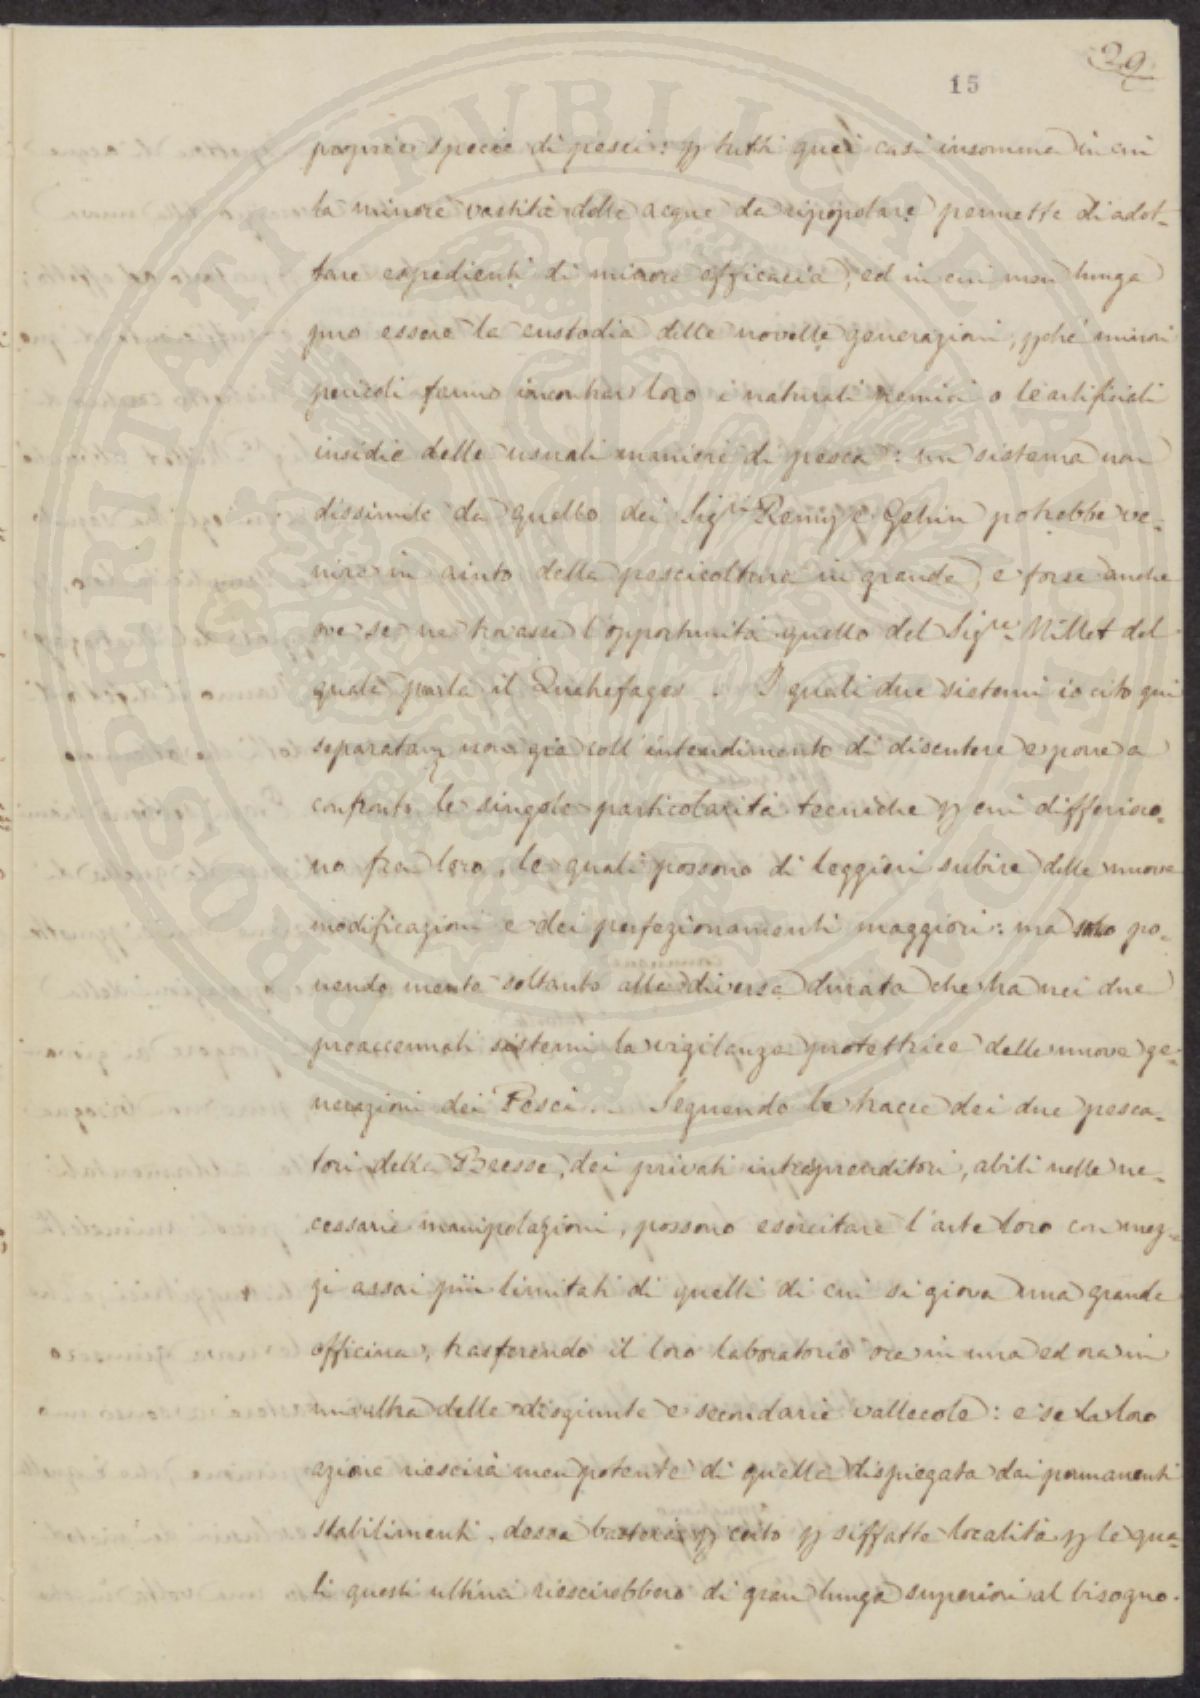 29
15
proprie specie di pesci: p tutti quei casi insomma in cui
la minore vastità delle acque da ripopolare permette di adot-
tare espedienti di minore efficacia, ed in cui men lunga
può essere la custodia delle novelle generazioni, pchè minori
pericoli fanno incontrar loro i naturali nemici o le artificiali
insidie delle usuali maniere di pesca: un sistema non
dissimile da quello dei Sigri Remy e Gehin potrebbe ve-
nire in aiuto della pescicoltura in grande, e forse anche
ove se ne trovasse l'opportunità quello del Sigre Millet del
quale parla il Quatrefages. I quali due sistemi io cito qui
separatam non già coll'intendimento di discutere e porre a
confronto le singole particolarità tecniche p cui differisco-
no fra loro, le quali possono di leggieri subire delle nuove
modificazioni e dei perfezionamenti maggiori: ma solo po-
nendo mente soltanto alla diversa durata che ha nei due
preaccennati sistemi la vigilanza protettrice delle nuove ge-
nerazioni dei Pesci. Seguendo le tracce dei due pesca-
tori della Bresse, dei privati intraprenditori, abili nelle ne-
cessarie manipolazioni, possono esercitare l'arte loro con mez-
zi assai più limitati di quelli di cui si giova una grande
officina, trasferendo il loro laboratorio ora in una ed ora in
un'altra delle disgiunte e secondarie vallecole: e se la loro
azione riescirà men potente di quella dispiegata dai permanenti
stabilimenti, dessa basterà p certo p siffatte località p le qua-
li questi ultimi riescirebbero di gran lunga superiori al bisogno.
PROSPERITATI PVBLICAE AVGENDAE